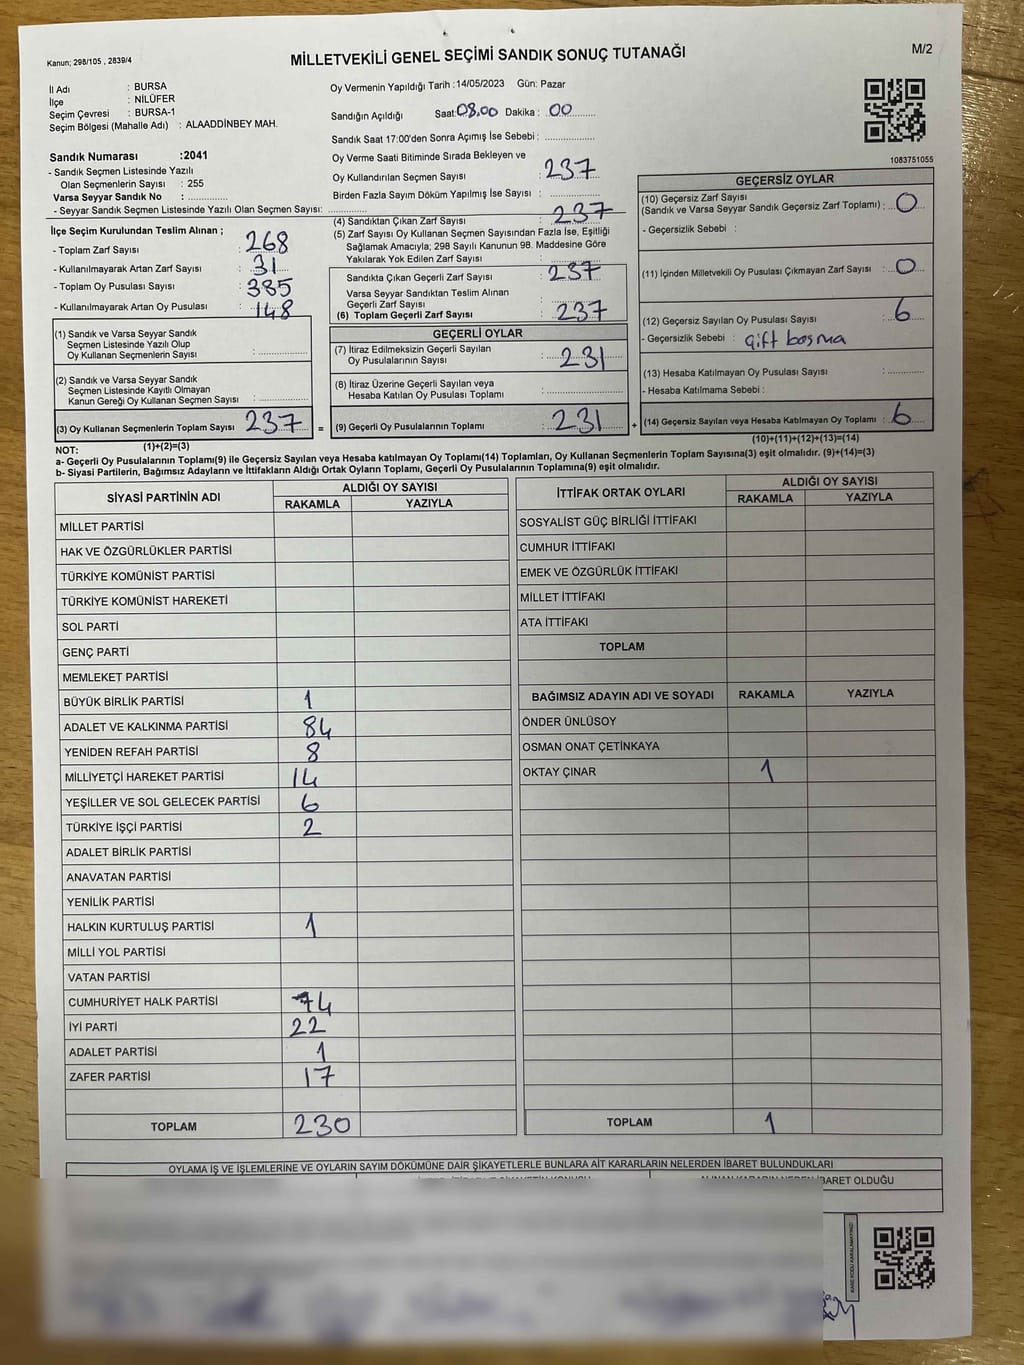 Kanun; 298/105 , 2839/4
MİLLETVEKİLİ GENEL SEÇİMİ SANDIK SONUÇ TUTANAĞI
M/2
İl Adı : BURSA
İlçe : NİLÜFER
Seçim Çevresi : BURSA-1
Seçim Bölgesi (Mahalle Adı) : ALAADDİNBEY MAH.
Sandık Numarası :2041
- Sandık Seçmen Listesinde Yazılı
Olan Seçmenlerin Sayısı : 255
Varsa Seyyar Sandık No :
- Seyyar Sandık Seçmen Listesinde Yazılı Olan Seçmen Sayısı:
İlçe Seçim Kurulundan Teslim Alınan ;
- Toplam Zarf Sayısı : 268
- Kullanılmayarak Artan Zarf Sayısı : 31
- Toplam Oy Pusulası Sayısı : 385
- Kullanılmayarak Artan Oy Pusulası : 148
(1) Sandık ve Varsa Seyyar Sandık
Seçmen Listesinde Yazılı Olup
Oy Kullanan Seçmenlerin Sayısı :
(2) Sandık ve Varsa Seyyar Sandık
Seçmen Listesinde Kayıtlı Olmayan
Kanun Gereği Oy Kullanan Seçmen Sayısı :
(3) Oy Kullanan Seçmenlerin Toplam Sayısı 237
(1)+(2)=(3)
Oy Vermenin Yapıldığı Tarih :14/05/2023 Gün: Pazar
Sandığın Açıldığı Saat:08.00 Dakika : 00
Sandık Saat 17:00'den Sonra Açımış İse Sebebi :
Oy Verme Saati Bitiminde Sırada Bekleyen ve
Oy Kullandırılan Seçmen Sayısı : 237
Birden Fazla Sayım Döküm Yapılmış İse Sayısı :
(4) Sandıktan Çıkan Zarf Sayısı : 237
(5) Zarf Sayısı Oy Kullanan Seçmen Sayısından Fazla İse, Eşitliği
Sağlamak Amacıyla; 298 Sayılı Kanunun 98. Maddesine Göre
Yakılarak Yok Edilen Zarf Sayısı :
Sandıkta Çıkan Geçerli Zarf Sayısı : 237
Varsa Seyyar Sandıktan Teslim Alınan
Geçerli Zarf Sayısı :
(6) Toplam Geçerli Zarf Sayısı : 237
GEÇERLİ OYLAR
(7) İtiraz Edilmeksizin Geçerli Sayılan
Oy Pusulalarının Sayısı : 231
(8) İtiraz Üzerine Geçerli Sayılan veya
Hesaba Katılan Oy Pusulaları Toplamı :
= (9) Geçerli Oy Pusulalarının Toplamı : 231
1083751055
GEÇERSİZ OYLAR
(10) Geçersiz Zarf Sayısı
(Sandık ve Varsa Seyyar Sandık Geçersiz Zarf Toplamı) : 0
- Geçersizlik Sebebi :
(11) İçinden Milletvekili Oy Pusulası Çıkmayan Zarf Sayısı : 0
(12) Geçersiz Sayılan Oy Pusulası Sayısı : 6
- Geçersizlik Sebebi : çift basma
(13) Hesaba Katılmayan Oy Pusulası Sayısı :
- Hesaba Katılmama Sebebi :
+ (14) Geçersiz Sayılan veya Hesaba Katılmayan Oy Toplamı : 6
(10)+(11)+(12)+(13)=(14)
NOT:
a- Geçerli Oy Pusulalarının Toplamı(9) ile Geçersiz Sayılan veya Hesaba katılmayan Oy Toplamı(14) Toplamları, Oy Kullanan Seçmenlerin Toplam Sayısına(3) eşit olmalıdır. (9)+(14)=(3)
b- Siyasi Partilerin, Bağımsız Adayların ve İttifakların Aldığı Ortak Oyların Toplamı, Geçerli Oy Pusulalarının Toplamına(9) eşit olmalıdır.
SİYASİ PARTİNİN ADI ALDIĞI OY SAYISI
RAKAMLA YAZIYLA
MİLLET PARTİSİ
HAK VE ÖZGÜRLÜKLER PARTİSİ
TÜRKİYE KOMÜNİST PARTİSİ
TÜRKİYE KOMÜNİST HAREKETİ
SOL PARTİ
GENÇ PARTİ
MEMLEKET PARTİSİ
BÜYÜK BİRLİK PARTİSİ 1
ADALET VE KALKINMA PARTİSİ 84
YENİDEN REFAH PARTİSİ 8
MİLLİYETÇİ HAREKET PARTİSİ 14
YEŞİLLER VE SOL GELECEK PARTİSİ 6
TÜRKİYE İŞÇİ PARTİSİ 2
ADALET BİRLİK PARTİSİ
ANAVATAN PARTİSİ
YENİLİK PARTİSİ
HALKIN KURTULUŞ PARTİSİ 1
MİLLİ YOL PARTİSİ
VATAN PARTİSİ
CUMHURİYET HALK PARTİSİ 74
İYİ PARTİ 22
ADALET PARTİSİ 1
ZAFER PARTİSİ 17
TOPLAM 230
İTTİFAK ORTAK OYLARI ALDIĞI OY SAYISI
RAKAMLA YAZIYLA
SOSYALİST GÜÇ BİRLİĞİ İTTİFAKI
CUMHUR İTTİFAKI
EMEK VE ÖZGÜRLÜK İTTİFAKI
MİLLET İTTİFAKI
ATA İTTİFAKI
TOPLAM
BAĞIMSIZ ADAYIN ADI VE SOYADI RAKAMLA YAZIYLA
ÖNDER ÜNLÜSOY
OSMAN ONAT ÇETİNKAYA
OKTAY ÇINAR 1
TOPLAM 1
OYLAMA İŞ VE İŞLEMLERİNE VE OYLARIN SAYIM DÖKÜMÜNE DAİR ŞİKAYETLERLE BUNLARA AİT KARARLARIN NELERDEN İBARET BULUNDUKLARI
İBARET OLDUĞU